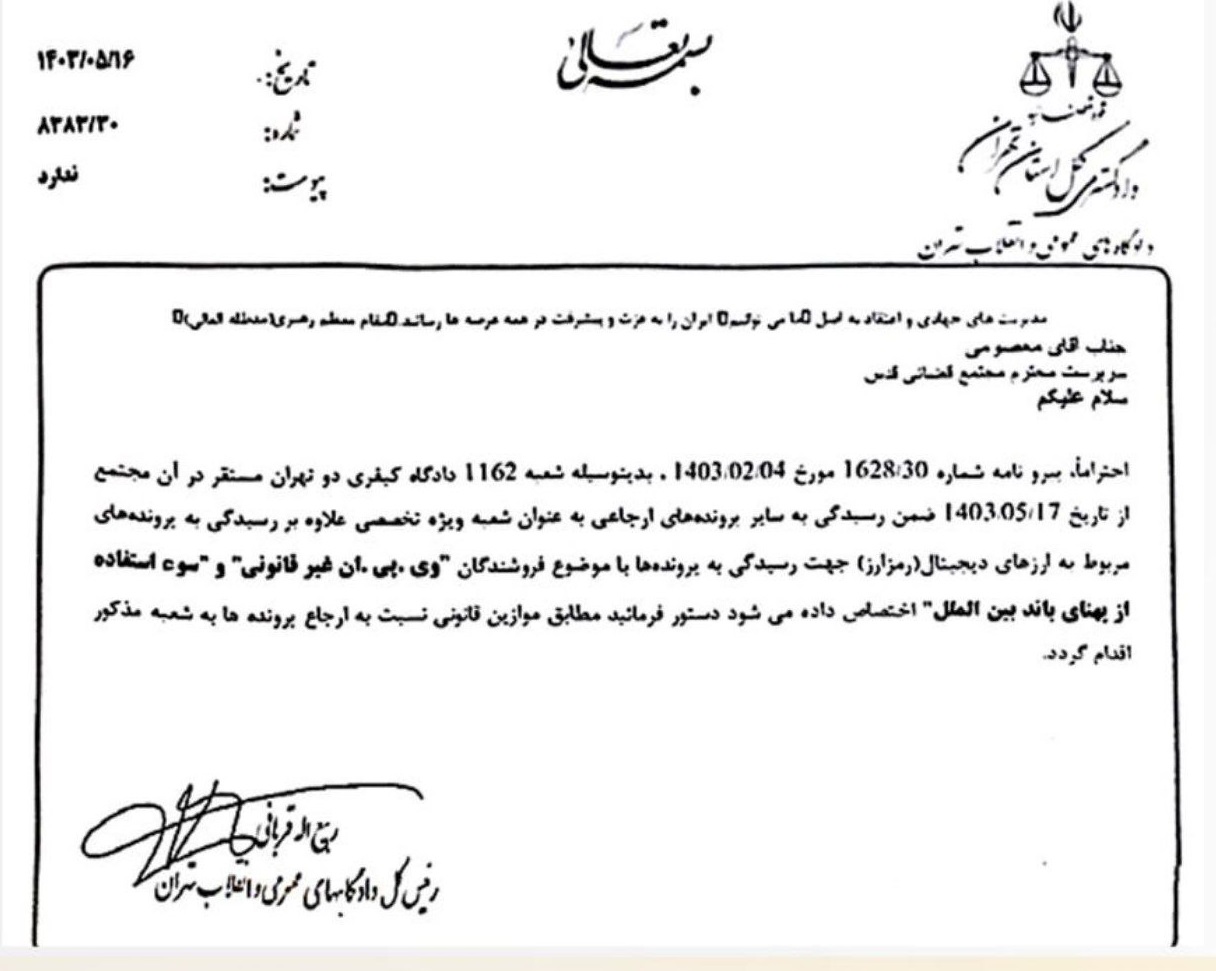 بسمه تعالی
تاریخ: ۱۴۰۳/۰۵/۱۶
شماره: ۸۳۸۳/۳۰
پیوست: ندارد
قوه قضائیه
دادگستری کل استان تهران
دادگاه های عمومی و انقلاب تهران
مدیریت های جهادی و اعتقاد به اصل ما می توانیم ایران را به عزت و پیشرفت در همه عرصه ها رساند. مقام معظم رهبری(مدظله العالی)
جناب آقای معصومی
سرپرست محترم مجتمع قضائی قدس
سلام علیکم
احتراماً، پیرو نامه شماره 1628/30 مورخ 1403/02/04 ، بدینوسیله شعبه 1162 دادگاه کیفری دو تهران مستقر در آن مجتمع
از تاریخ 1403/05/17 ضمن رسیدگی به سایر پرونده‌های ارجاعی به عنوان شعبه ویژه تخصصی علاوه بر رسیدگی به پرونده‌های
مربوط به ارزهای دیجیتال(رمزارز) جهت رسیدگی به پرونده‌ها با موضوع فروشندگان "وی .پی .ان غیر قانونی" و "سوء استفاده
از پهنای باند بین الملل" اختصاص داده می شود دستور فرمائید مطابق موازین قانونی نسبت به ارجاع پرونده ها به شعبه مذکور
اقدام گردد.
ربیع اله قربانی
رئیس کل دادگاههای عمومی و انقلاب تهران